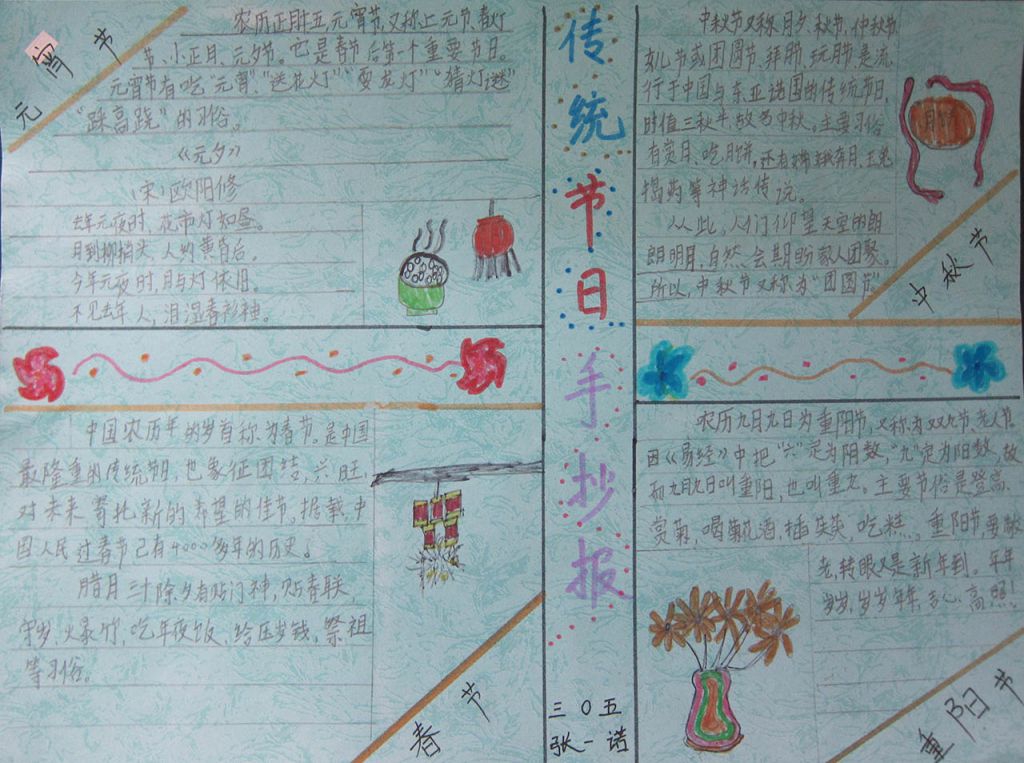 元宵节
农历正月十五元宵节,又称上元节,春灯
节、小正月、元夕节。它是春节后第一个重要节日。
元宵节有吃“元宵”“送花灯”“耍龙灯”“猜灯谜”
“踩高跷”的习俗。
《元夕》
(宋)欧阳修
去年元夜时,花市灯如昼。
月到柳梢头,人约黄昏后。
今年元夜时,月与灯依旧。
不见去年人,泪湿春衫袖。
中国农历年的岁首称为春节。是中国
最隆重的传统节日,也象征团结,兴旺,
对未来寄托新的希望的佳节。据载,中
国人民过春节已有4000多年的历史。
腊月三十除夕有贴门神,贴春联,
守岁,火暴竹,吃年夜饭,给压岁钱,祭祖
等习俗。
春节
传统节日手抄报
三〇五
张一诺
中秋节又称月夕、秋节、仲秋节,
或团圆节、拜月节、玩月节是流
行于中国与东亚诸国的传统节日,
时值三秋半,故名中秋。主要习俗
有赏月、吃月饼,还有嫦娥奔月、玉兔
捣药等神话传说。
从此,人们仰望天空的朗
朗明月,自然会期盼家人团聚。
所以,中秋节又称为“团圆节”
中秋节
农历九月九日为重阳节,又称为双九节,老人节
因《易经》中把“六”定为阴数,“九”定为阳数,故
而九月九日叫重阳,也叫重九。主要节俗是登高,
赏菊,喝菊花酒,插茱萸,吃糕。重阳节要敬
老,转眼又是新年到。年年
岁岁,岁岁年年,吉心高照!
重阳节